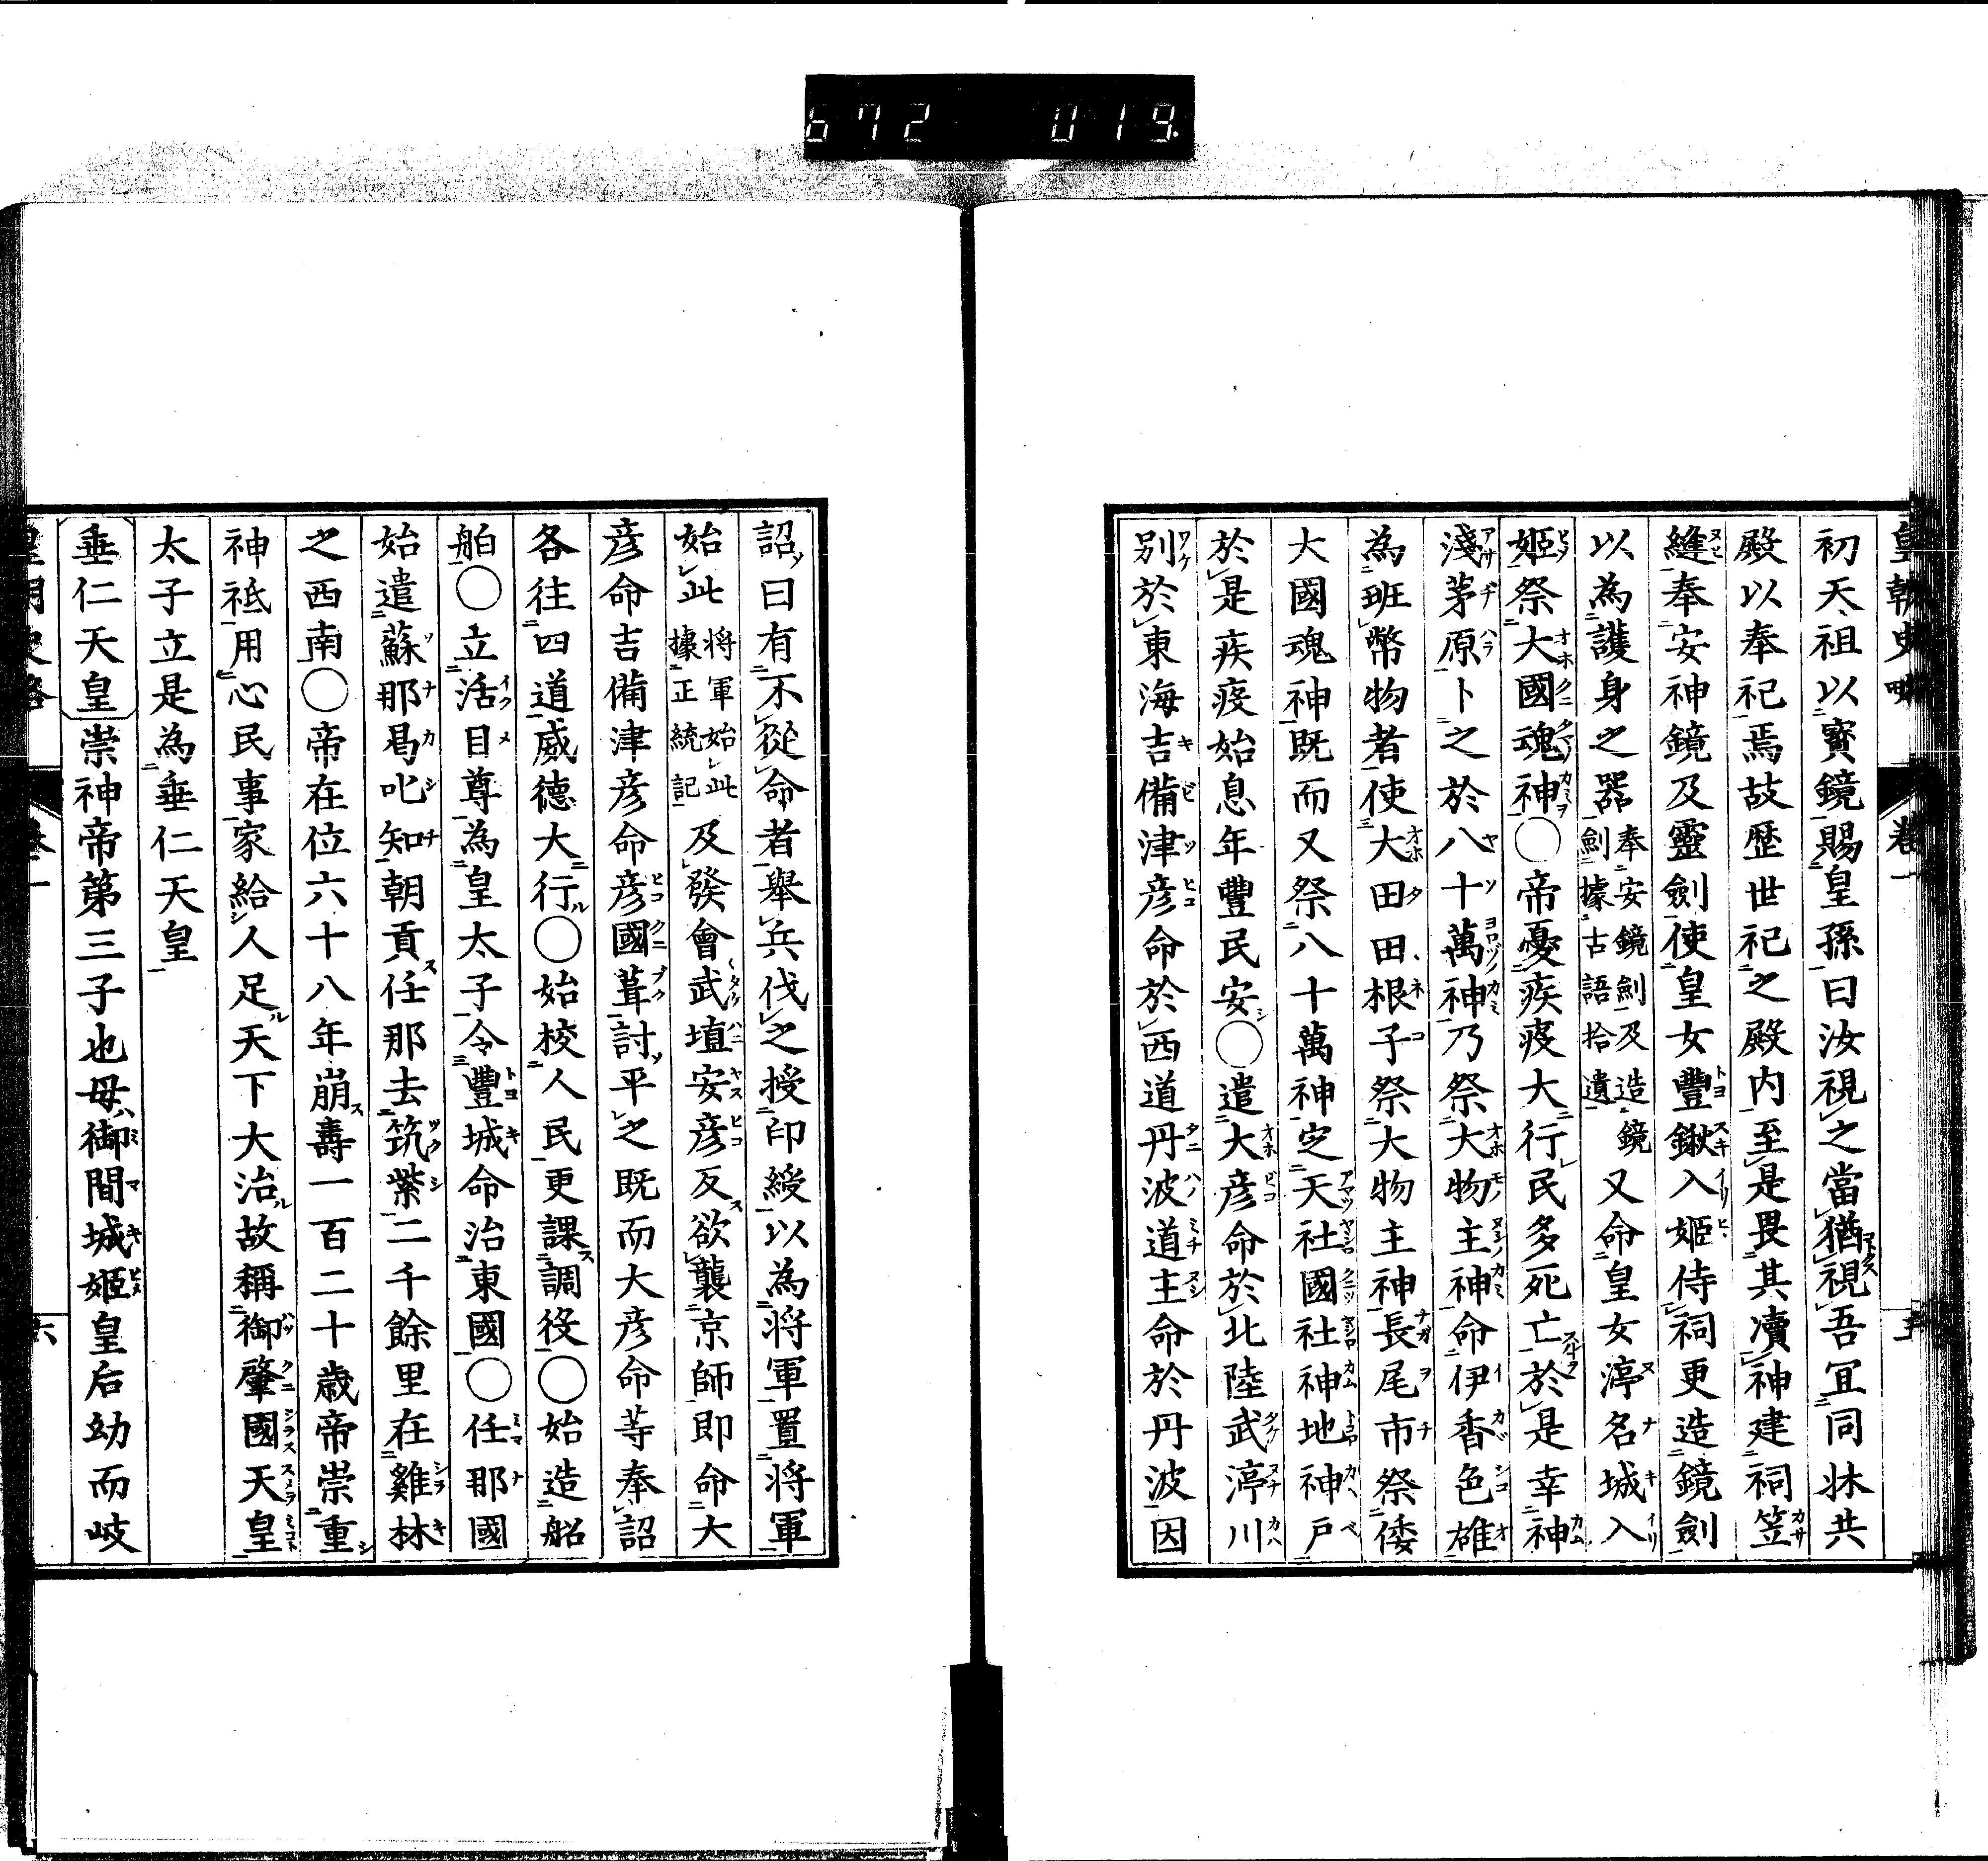 672 019
皇朝史略 卷一
初天祖以寶鏡賜皇孫曰汝視之當猶視吾宜同牀共
殿以奉祀焉故歷世祀之殿内至是畏其瀆神建祠笠
縫奉安神鏡及靈劍使皇女豐鍬入姬侍祠更造鏡劍
以為護身之器奉安鏡劍及造鏡劍據古語拾遺又命皇女渟名城入
姬祭大國魂神〇帝憂疾疫大行民多死亡於是幸神
淺茅原卜之於八十萬神乃祭大物主神命伊香色雄
為班幣物者使大田田根子祭大物主神長尾市祭倭
大國魂神既而又祭八十萬神定天社國社神地神戶
於是疾疫始息年豐民安〇遣大彦命於北陸武渟川
別於東海吉備津彦命於西道丹波道主命於丹波因
詔曰有不從命者舉兵伐之授印綬以為將軍置將軍
始此將軍始此據正統記及發會武埴安彦反欲襲京師即命大
彦命吉備津彦命彦國葺討平之既而大彦命等奉詔
各往四道威德大行〇始校人民更課調役〇始造船
舶〇立活目尊為皇太子令豐城命治東國〇任那國
始遣蘇那曷叱知朝貢任那去筑紫二千餘里在雞林
之西南〇帝在位六十八年崩壽一百二十歲帝崇重
神祇用心民事家給人足天下大治故稱御肇國天皇
太子立是為垂仁天皇
垂仁天皇崇神帝第三子也母御間城姬皇后幼而岐
皇朝史略 卷一 六